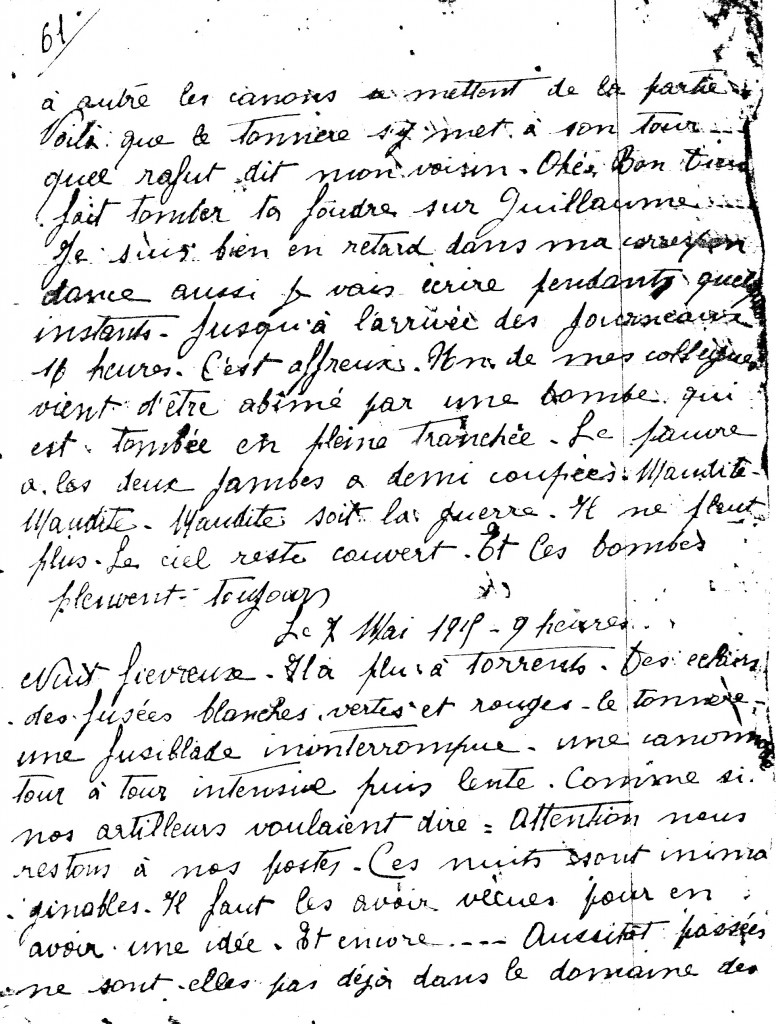 61
à autre les canons se mettent de la partie
Voilà que le tonnière s'y met à son tour
quel rafut dit mon voisin - Ohé. Bon Dieu
fait tomber ta foudre sur Guillaume ...
Je suis bien en retard dans ma correspon
dance aussi je vais écrire pendants quelq
instants - Jusqu'à l'arrivée des journeaux
16 heures. C'est affreux. Un de mes collègues
vient d'être abîmé par une bombe qui
est tombée en pleine tranchée - Le pauvre
a les deux jambes a demi coupées. Maudite -
Maudite - Maudite soit la guerre. Il ne pleut
plus - Le ciel reste couvert - Et les bombes
pleuvent - toujours
Le 7 Mai 1915 - 9 heures
Nuit fievreuse - Il a plu à torrents - Des eclairs
des fusées blanches vertes et rouges - le tonnère -
une fusiblade ininterrompue - une canonn
tour à tour intensive puis lente. Comme si
nos artilleurs voulaient dire = Attention nous
restons à nos postes - Ces nuits sont inima
ginables - Il faut les avoir vécues pour en
avoir une idée - Et encore .... Aussitot passées
ne sont-elles pas déjà dans le domaine des